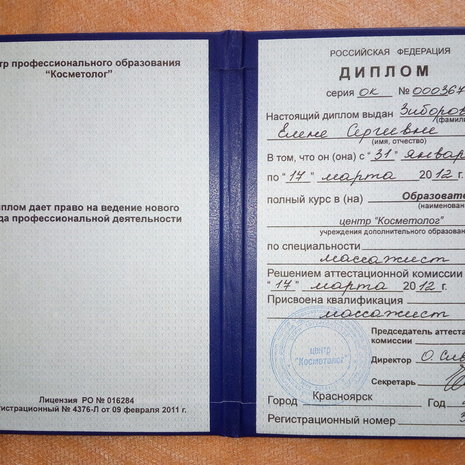 тр профессионального образования
"Косметолог"
плом дает право на ведение нового
да профессиональной деятельности
Лицензия РО № 016284
гистрационный № 4376-Л от 09 февраля 2011 г.
РОССИЙСКАЯ ФЕДЕРАЦИЯ
ДИПЛОМ
серия ок № 000367
Настоящий диплом выдан Зиборо
(фамили
Елене Сергеевне
(имя, отчество)
В том, что он (она) с "31" январ
по "17" марта 2012 г.
полный курс в (на) Образовате
(наименован
центр "Косметолог"
учреждения дополнительного образован
по специальности
массажист
Решением аттестационной комиссии
"17" марта 2012 г.
Присвоена квалификация
массажист
Председатель аттеста
комиссии
Директор
Секретарь
центр
"Косметолог"
Город Красноярск Год
Регистрационный номер